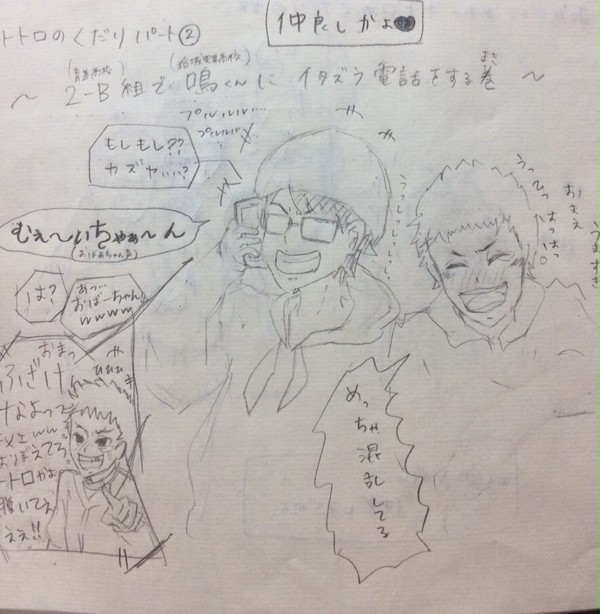 トトロのくだりパート②
仲良しかよ♥
(青道高校)
(稲城実業高校)
～ 2-B 組で 鳴くんに イタズラ電話をする巻 ～
まき
プルルルル....
プルルルル
もしもし??
カズヤぃぃ?
むぇ～いちゃぁ～ん
(おばあちゃん声)
うっしっしっしっし
うってっはっはっはっ
おまえ
うますぎ
は?
あっ...
おばーちゃん
wwww
めっちゃ混乱してる
おまっ
ふざけ
けなよっ
ひひひ
トロかよ
腹いてぇ
ええ!!